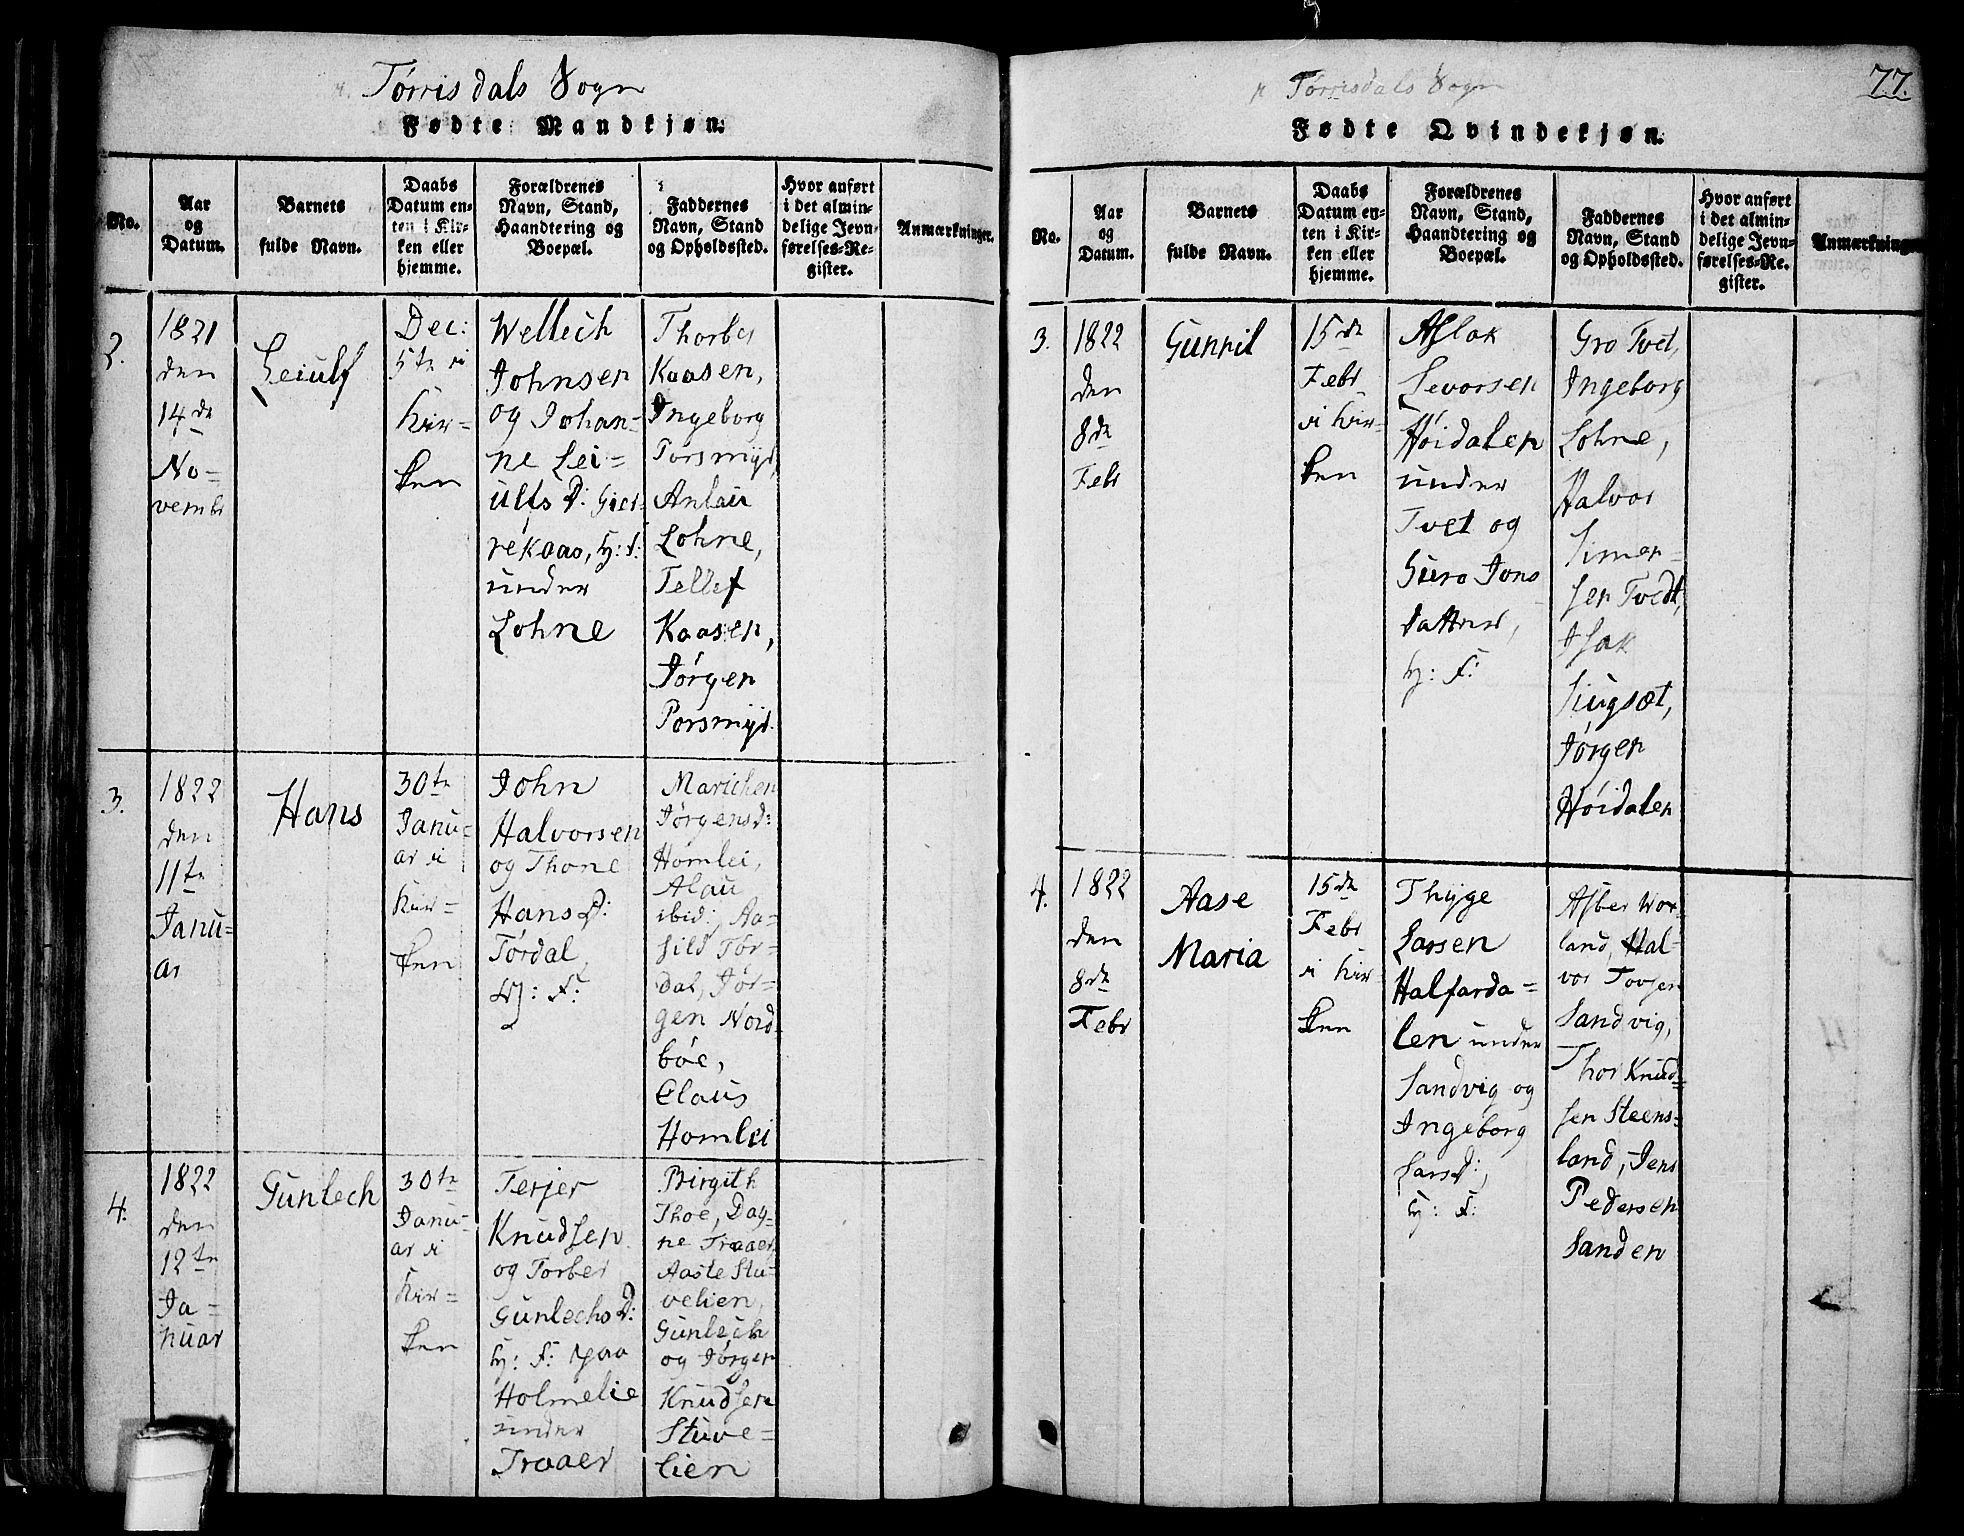 Tørrisdals Sogn
Fødte Mandkjøn.
No.
Aar
og
Datum.
Barnets
fulde Navn.
Daabs
Datum en-
ten i Kir-
ken eller
hjemme.
Forældrenes
Navn, Stand,
Haandtering og
Boepæl.
Faddernes
Navn, Stand
og Opholdssted.
Hvor anført
i det almin-
delige Jevn-
førelses-Re-
gister.
Anmærkninger.
2.
1821
den
14de
No=
vembr
Leiulf
Dec:
5te i
Kir=
ken
Wellech
Johnsen
og Johan=
ne Lei=
ulfs D:
rekaas, G: F:
under
Lohne
Thorber
Kaasen,
Ingeborg
Porsmyr,
Anlaur
Lohne,
Tellef
Kaasen,
Jørgen
Porsmyr.
3.
1822
den
11te
Janu=
ar
Hans
30te
Janu=
ar i
Kir=
ken
John
Halvorsen
og Thone
Hans D:
Tørdal,
G: F:
Marichen
Jørgensd:
Homlei,
Alau
ibid:, Aa=
sild Tør=
dal, Jør=
gen Nord=
bøe,
Claus
Homlei
4.
1822
den
12te
Ja=
nuar
Gunlech
30te
Janu=
ar i
Kir=
ken
Terjer
Knudsen
og Torber
Gunlechs D:
G: F: paa
Holmelie
under
Traaer
Birgith
Thoe, Dag=
ne Traaer,
Aaste Stu=
velien,
Gunlech
og Jørgen
Knudsen
Stuve=
lien
77.
Tørrisdals Sogn
Fødte Qvindekjøn.
No.
Aar
og
Datum.
Barnets
fulde Navn.
Daabs
Datum en-
ten i Kir-
ken eller
hjemme.
Forældrenes
Navn, Stand,
Haandtering og
Boepæl.
Faddernes
Navn, Stand
og Opholdssted.
Hvor anført
i det almin-
delige Jevn-
førelses-Re-
gister.
Anmærkning
3.
1822
den
8de
Febr
Gunnil
15de
Febr
i Kir=
ken
Aslak
Levorsen
Høidalen
under
Tvet og
Guro Jons
datter,
G: F:
Gro Tvet,
Ingeborg
Lohne,
Halvor
Simen=
sen Tvedt,
Isak
Siugsæt,
Jørgen
Høidalen
4.
1822
den
8de
Febr
Aase
Maria
15de
Febr
i Kir=
ken
Thyge
Larsen
Halfarda=
len under
Sandvig og
Ingeborg
Larsd:,
G: F:
Asber Vor=
land, Hal=
vor Tovsen
Sandvig,
Thor Knud=
sen Steens=
land, Jens
Pedersen
Sanden